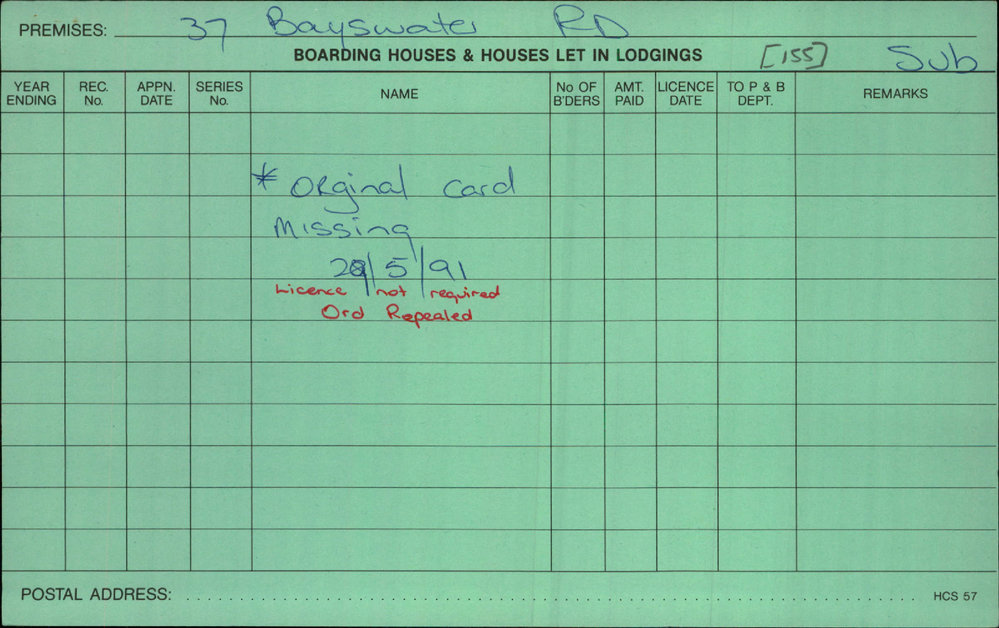 PREMISES: 37 Bayswater RD
BOARDING HOUSES & HOUSES LET IN LODGINGS [155] Sub
YEAR ENDING REC. No. APPN. DATE SERIES No. NAME No OF B'DERS AMT. PAID LICENCE DATE TO P & B DEPT. REMARKS
* ORginal Card
Missing
28/5/91
Licence not required
Ord Repealed
POSTAL ADDRESS: HCS 57